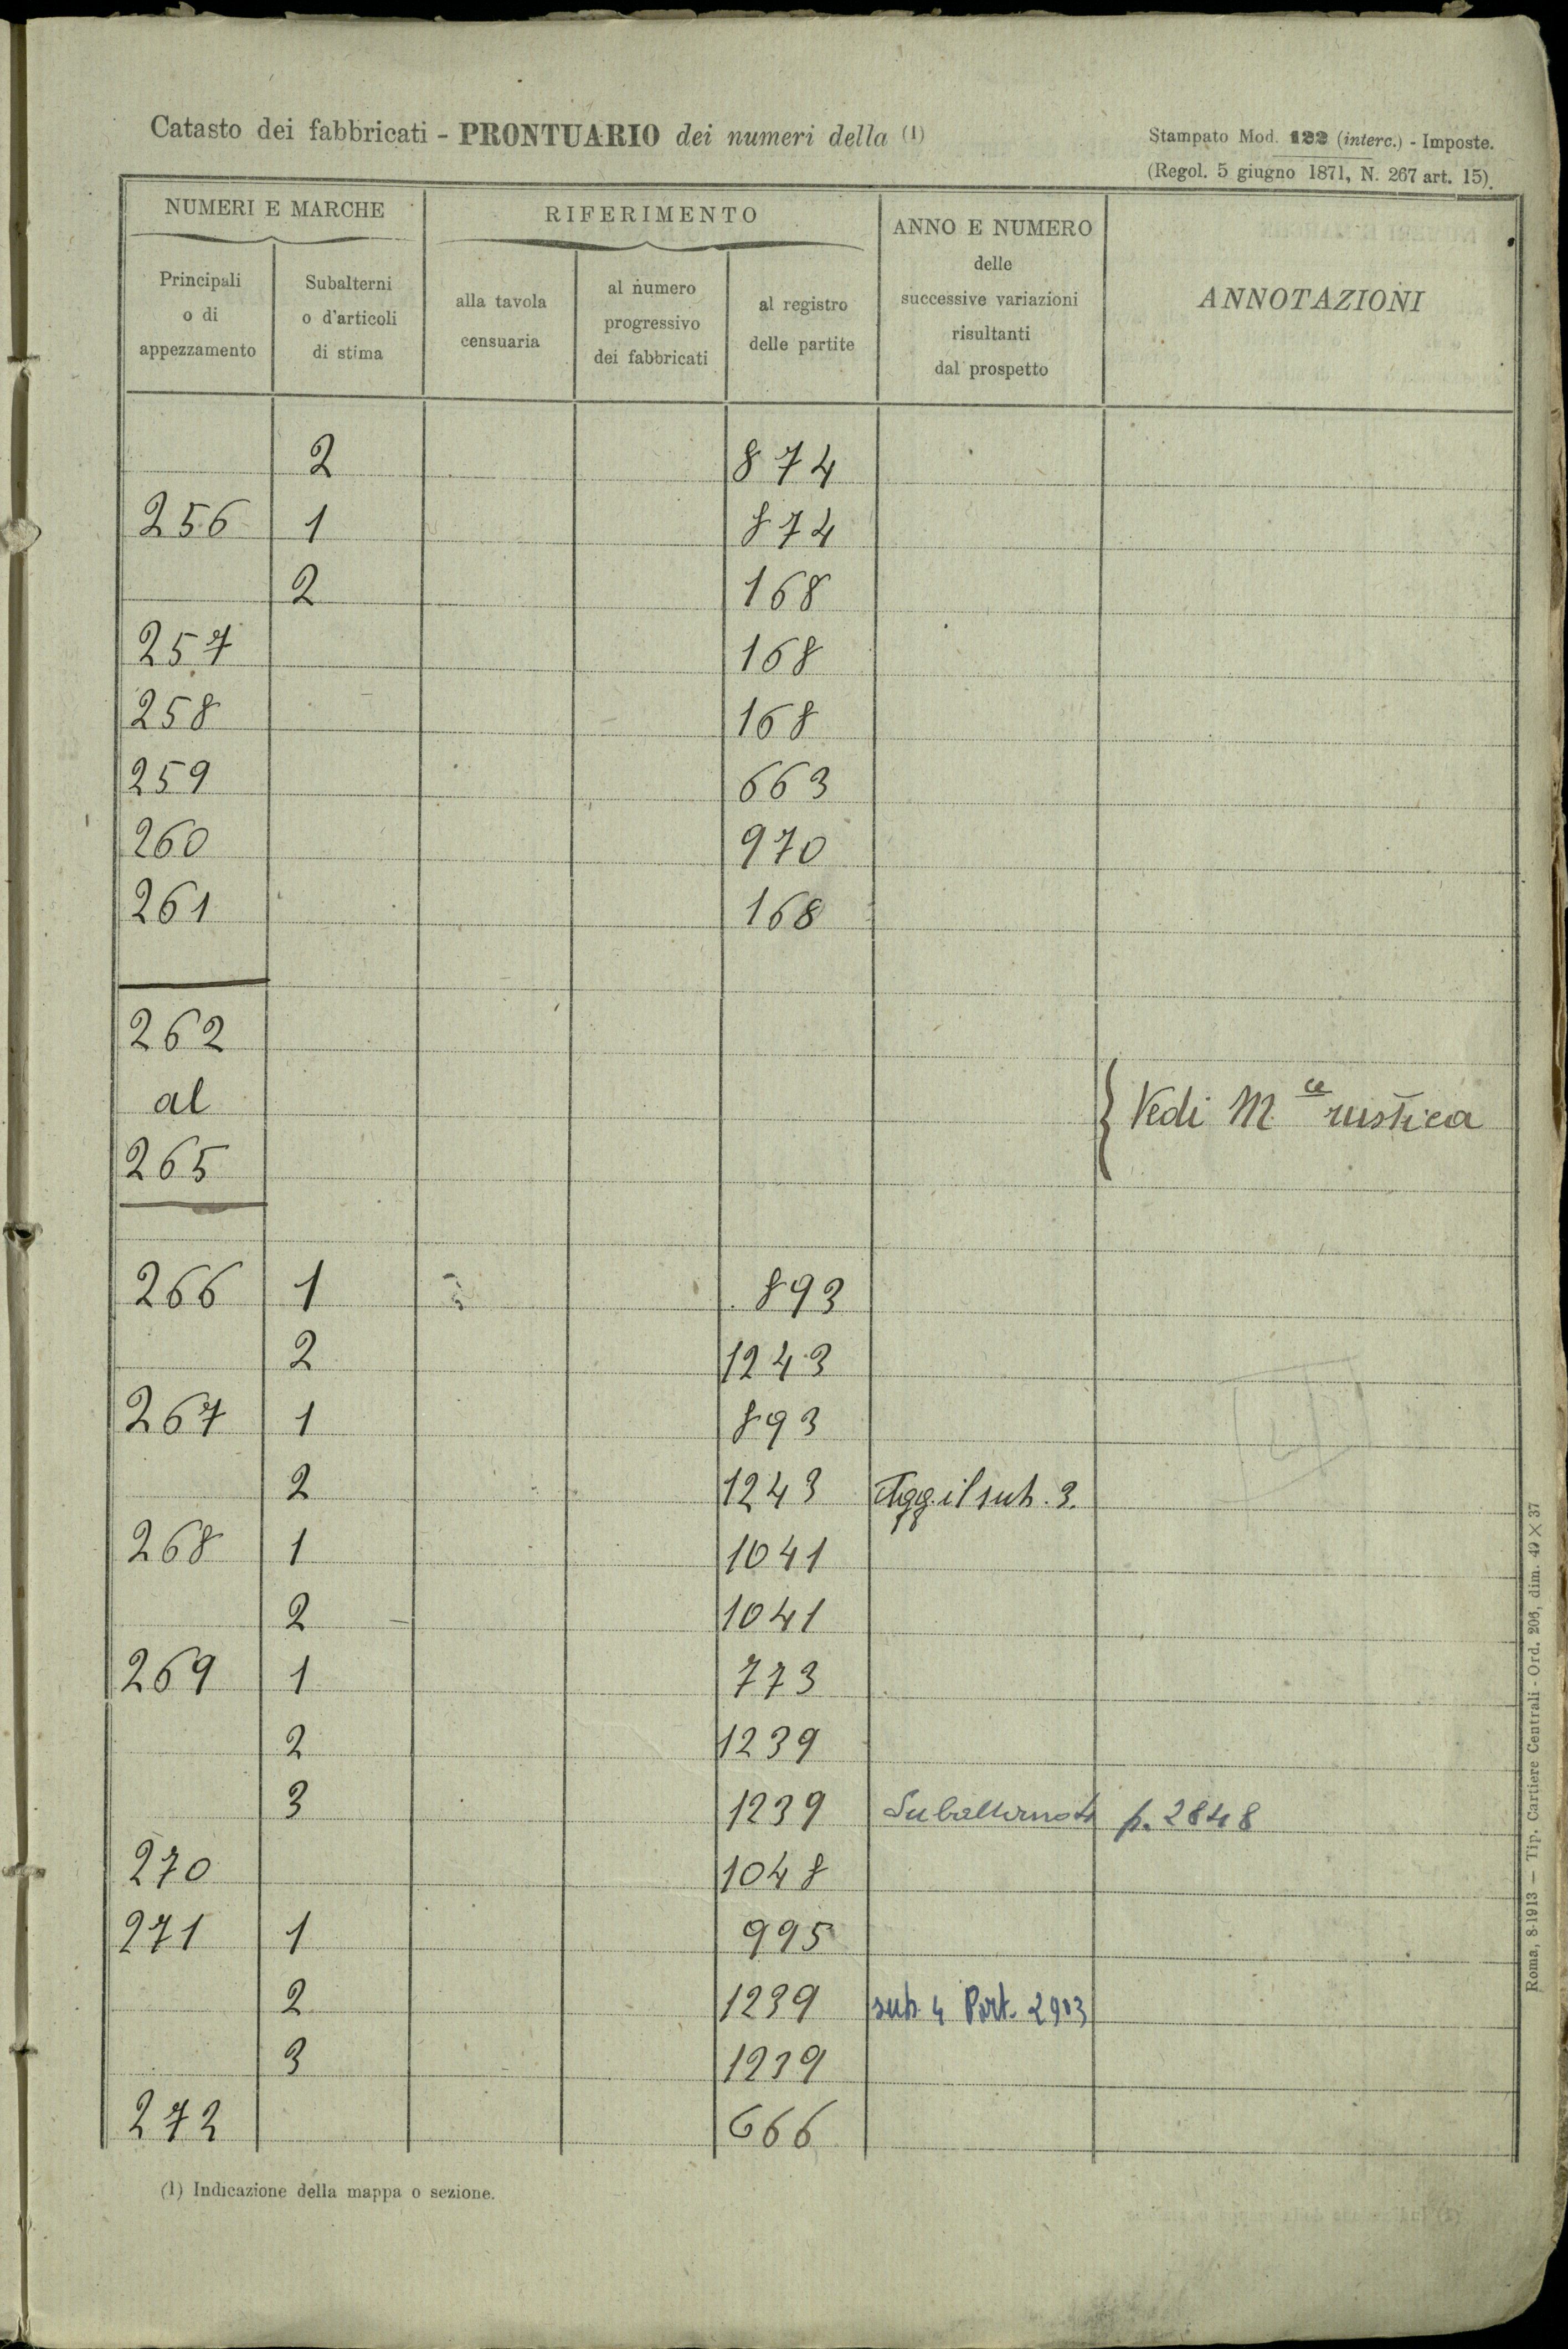 Catasto dei fabbricati - PRONTUARIO dei numeri della (1)
Stampato Mod. 122 (interc.) - Imposte.
(Regol. 5 giugno 1871, N. 267 art. 15).
NUMERI E MARCHE
RIFERIMENTO
ANNO E NUMERO
delle
successive variazioni
risultanti
dal prospetto
ANNOTAZIONI
Principali
o di
appezzamento
Subalterni
o d'articoli
di stima
alla tavola
censuaria
al numero
progressivo
dei fabbricati
al registro
delle partite
2 874
256 1 874
2 168
257 168
258 168
259 663
260 970
261 168
262
al
265
Vedi M ce rustica
266 1 893
2 1243
267 1 893
2 1243 Agg. il sub. 3.
268 1 1041
2 1041
269 1 773
2 1239
3 1239 Subalterno 4 p. 2848
270 1048
271 1 995
2 1239 sub. 4 Part. 2903
3 1239
272 666
(1) Indicazione della mappa o sezione.
Roma, 8-1913 — Tip. Cartiere Centrali - Ord. 206, dim. 49 × 37